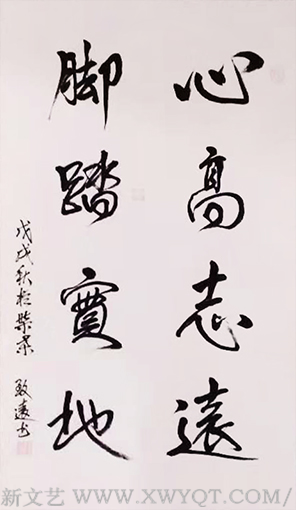 心高志遠
脚踏實地
戊戌秋於紫京
致遠书
新文艺 WWW.XWYQT.COM/